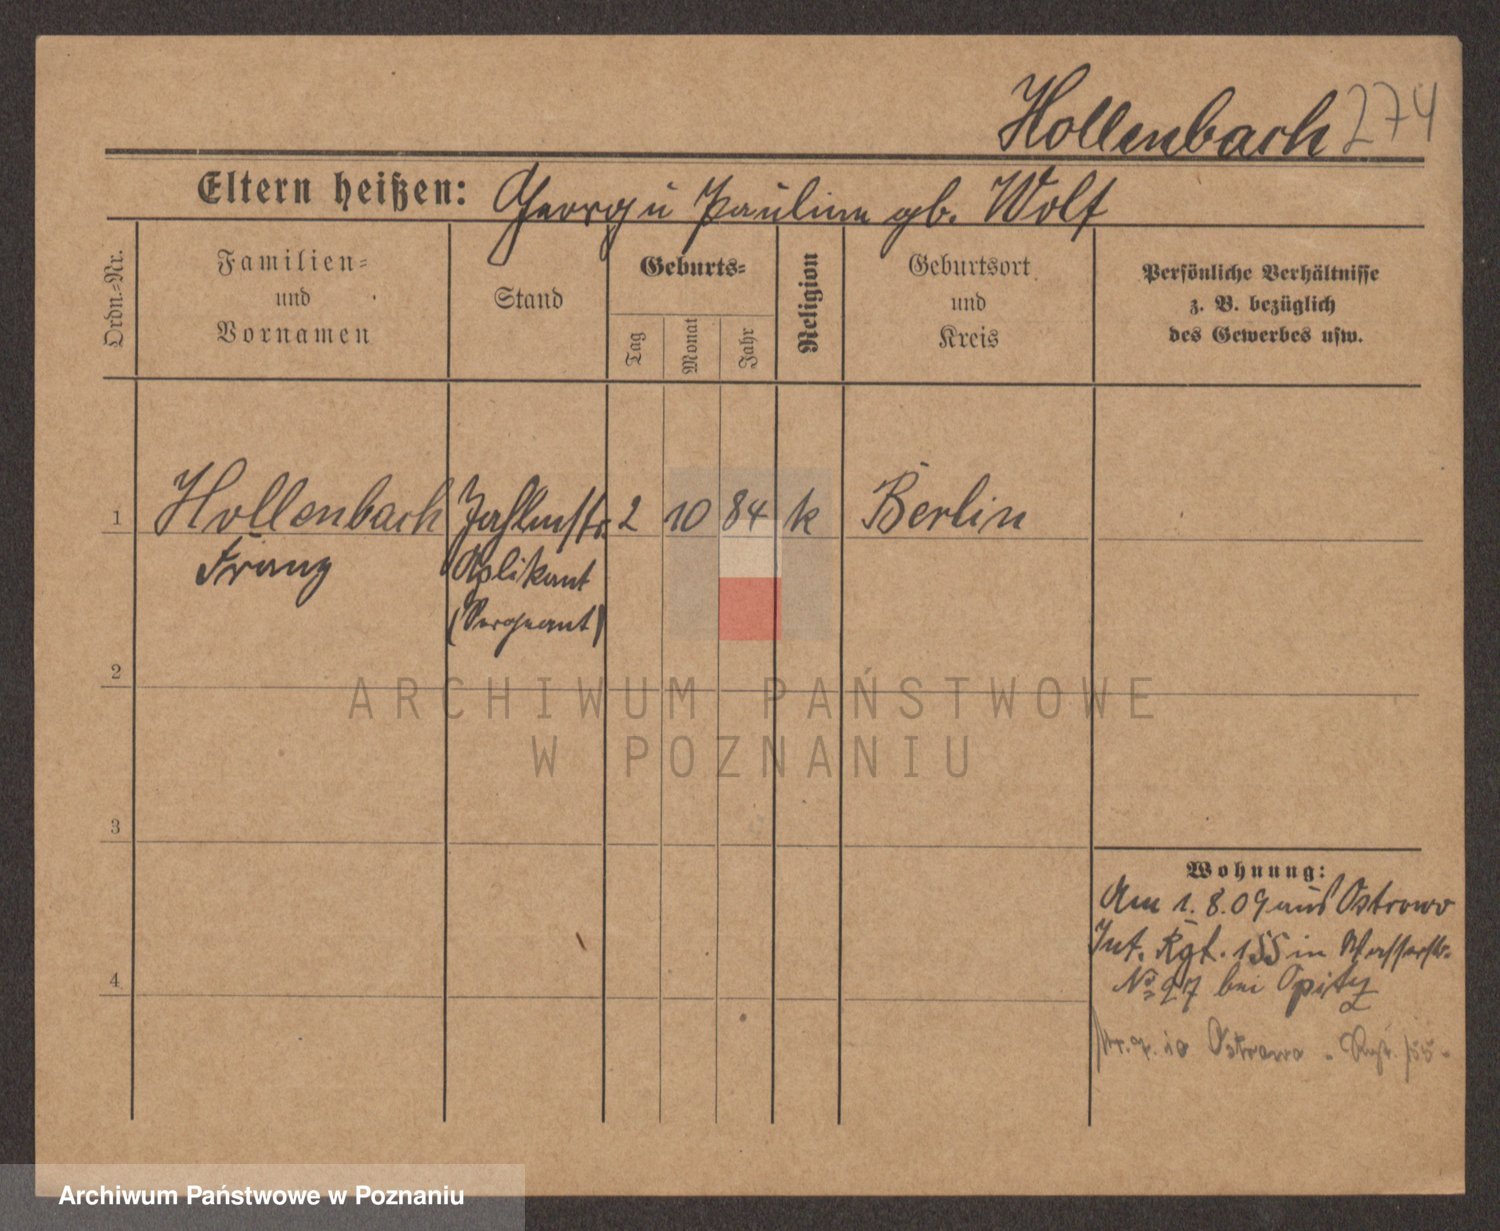 Hollenbach 274
Eltern heißen: Georg u Pauline gb. Wolf
Ordn.-Nr.
Familien-
und
Vornamen
Stand
Geburts-
Tag
Monat
Jahr
Religion
Geburtsort
und
Kreis
Persönliche Verhältnisse
z. B. bezüglich
des Gewerbes usw.
1 Hollenbach Zahlmstr. 2 10 84 k Berlin
Franz Aplikant
(Sergeant)
2
3
4
Wohnung:
Am 1. 8. 09 aus Ostrowo
Inf. Rgt. 155 in Wasserstr.
No 27 bei Opitz
10 Ostrowo - Rgt. 155 -
ARCHIWUM PAŃSTWOWE
W POZNANIU
Archiwum Państwowe w Poznaniu